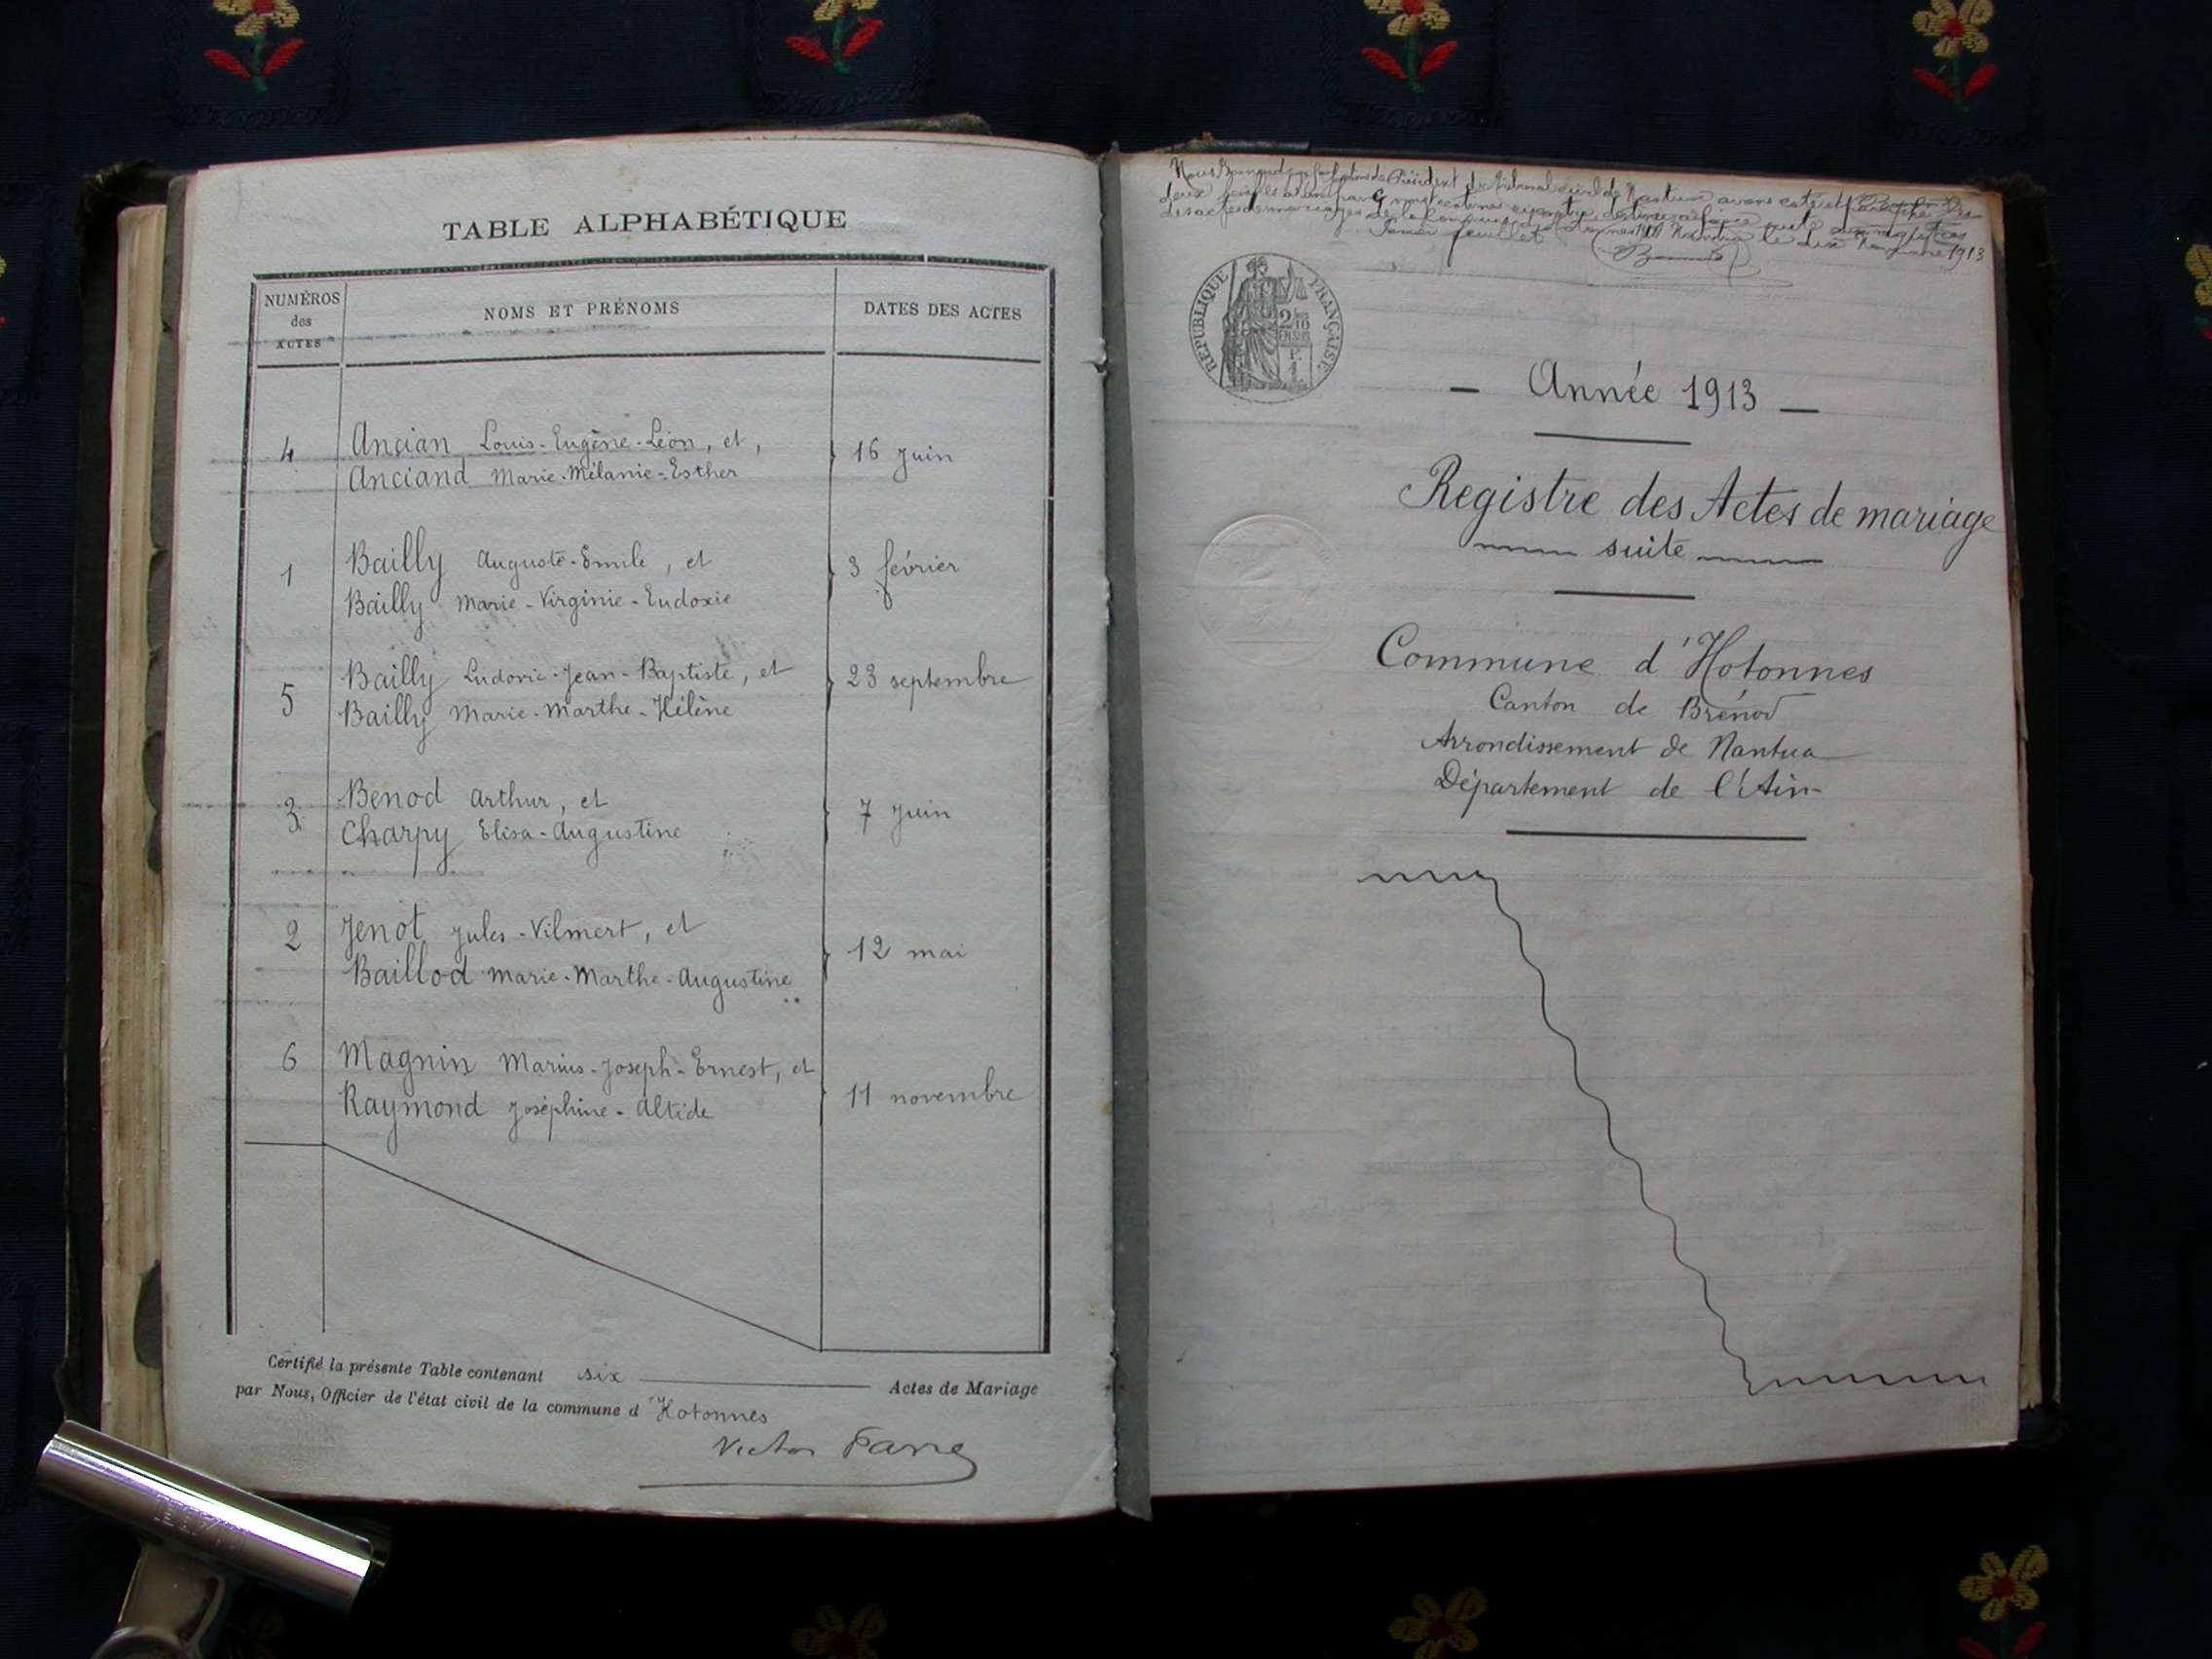 TABLE ALPHABÉTIQUE
NUMÉROS
des
ACTES
NOMS ET PRÉNOMS
DATES DES ACTES
4
Ancian Louis-Eugène-Léon, et,
Anciand Marie-Mélanie-Esther
16 juin
1
Bailly Auguste-Emile, et
Bailly Marie-Virginie-Eudoxie
3 février
5
Bailly Ludovic-Jean-Baptiste, et
Bailly Marie-Marthe-Hélène
23 septembre
3
Benod Arthur, et
Charpy Elisa-Augustine
7 juin
2
Jenot Jules-Vilmert, et
Baillod Marie-Marthe-Augustine
12 mai
6
Magnin Marius-Joseph-Ernest, et
Raymond Joséphine-Altide
11 novembre
Certifié la présente Table contenant six Actes de Mariage
par Nous, Officier de l'état civil de la commune d'Hotonnes
Victor
Nous Président du tribunal civil de Nantua avons coté et paraphé
deux
des actes de mariages de la commune
feuillet 1913
RÉPUBLIQUE FRANÇAISE
- Année 1913 -
Registre des Actes de mariage
suite
Commune d'Hotonnes
Canton de Brénod
Arrondissement de Nantua
Département de l'Ain-